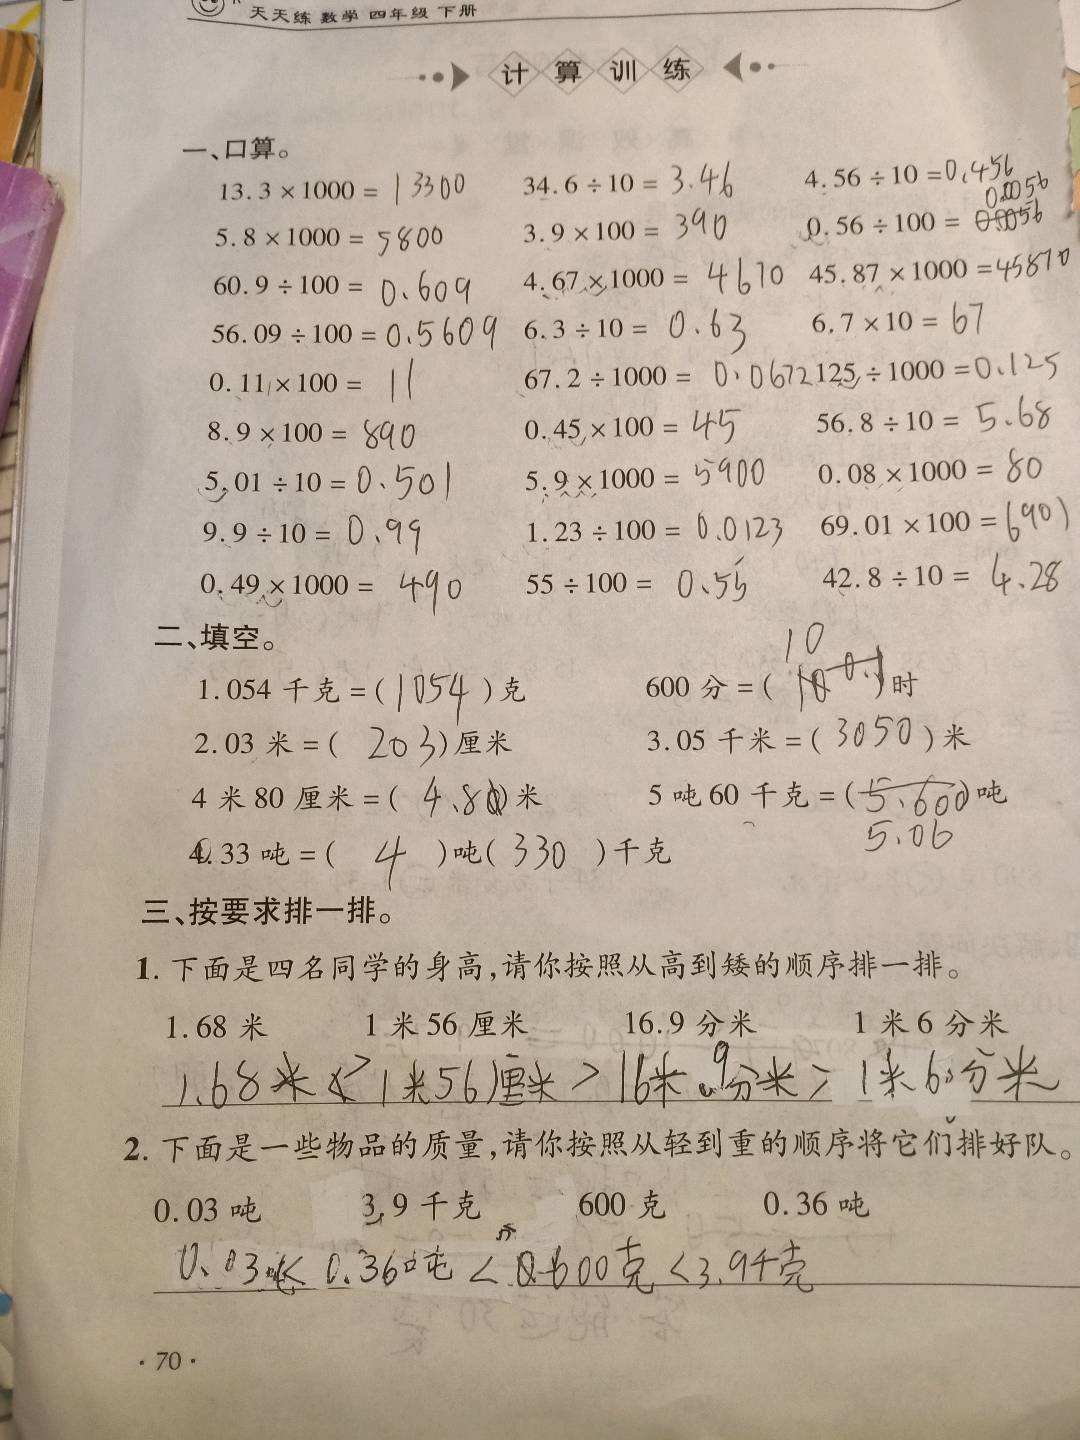 天天练 数学 四年级 下册
计算训练
一、口算。
13.3×1000=13300 34.6÷10=3.46 4.56÷10=0.456
5.8×1000=5800 3.9×100=390 0.56÷100=0.0056
60.9÷100=0.609 4.67×1000=4670 45.87×1000=45870
56.09÷100=0.5609 6.3÷10=0.63 6.7×10=67
0.11×100=11 67.2÷1000=0.0672 125÷1000=0.125
8.9×100=890 0.45×100=45 56.8÷10=5.68
5.01÷10=0.501 5.9×1000=5900 0.08×1000=80
9.9÷10=0.99 1.23÷100=0.0123 69.01×100=6901
0.49×1000=490 55÷100=0.55 42.8÷10=4.28
二、填空。
1.054千克=(1054)克 600分=(10)时
2.03米=(203)厘米 3.05千米=(3050)米
4米80厘米=(4.80)米 5吨60千克=(5.600)吨
5.06
4.33吨=(4)吨(330)千克
三、按要求排一排。
1.下面是四名同学的身高,请你按照从高到矮的顺序排一排。
1.68米 1米56厘米 16.9分米 1米6分米
1.68米>1米56厘米>16米.9分米>1米6分米
2.下面是一些物品的质量,请你按照从轻到重的顺序将它们排好队。
0.03吨 3.9千克 600克 0.36吨
0.03吨<0.36吨<0.600千克<3.9千克
·70·